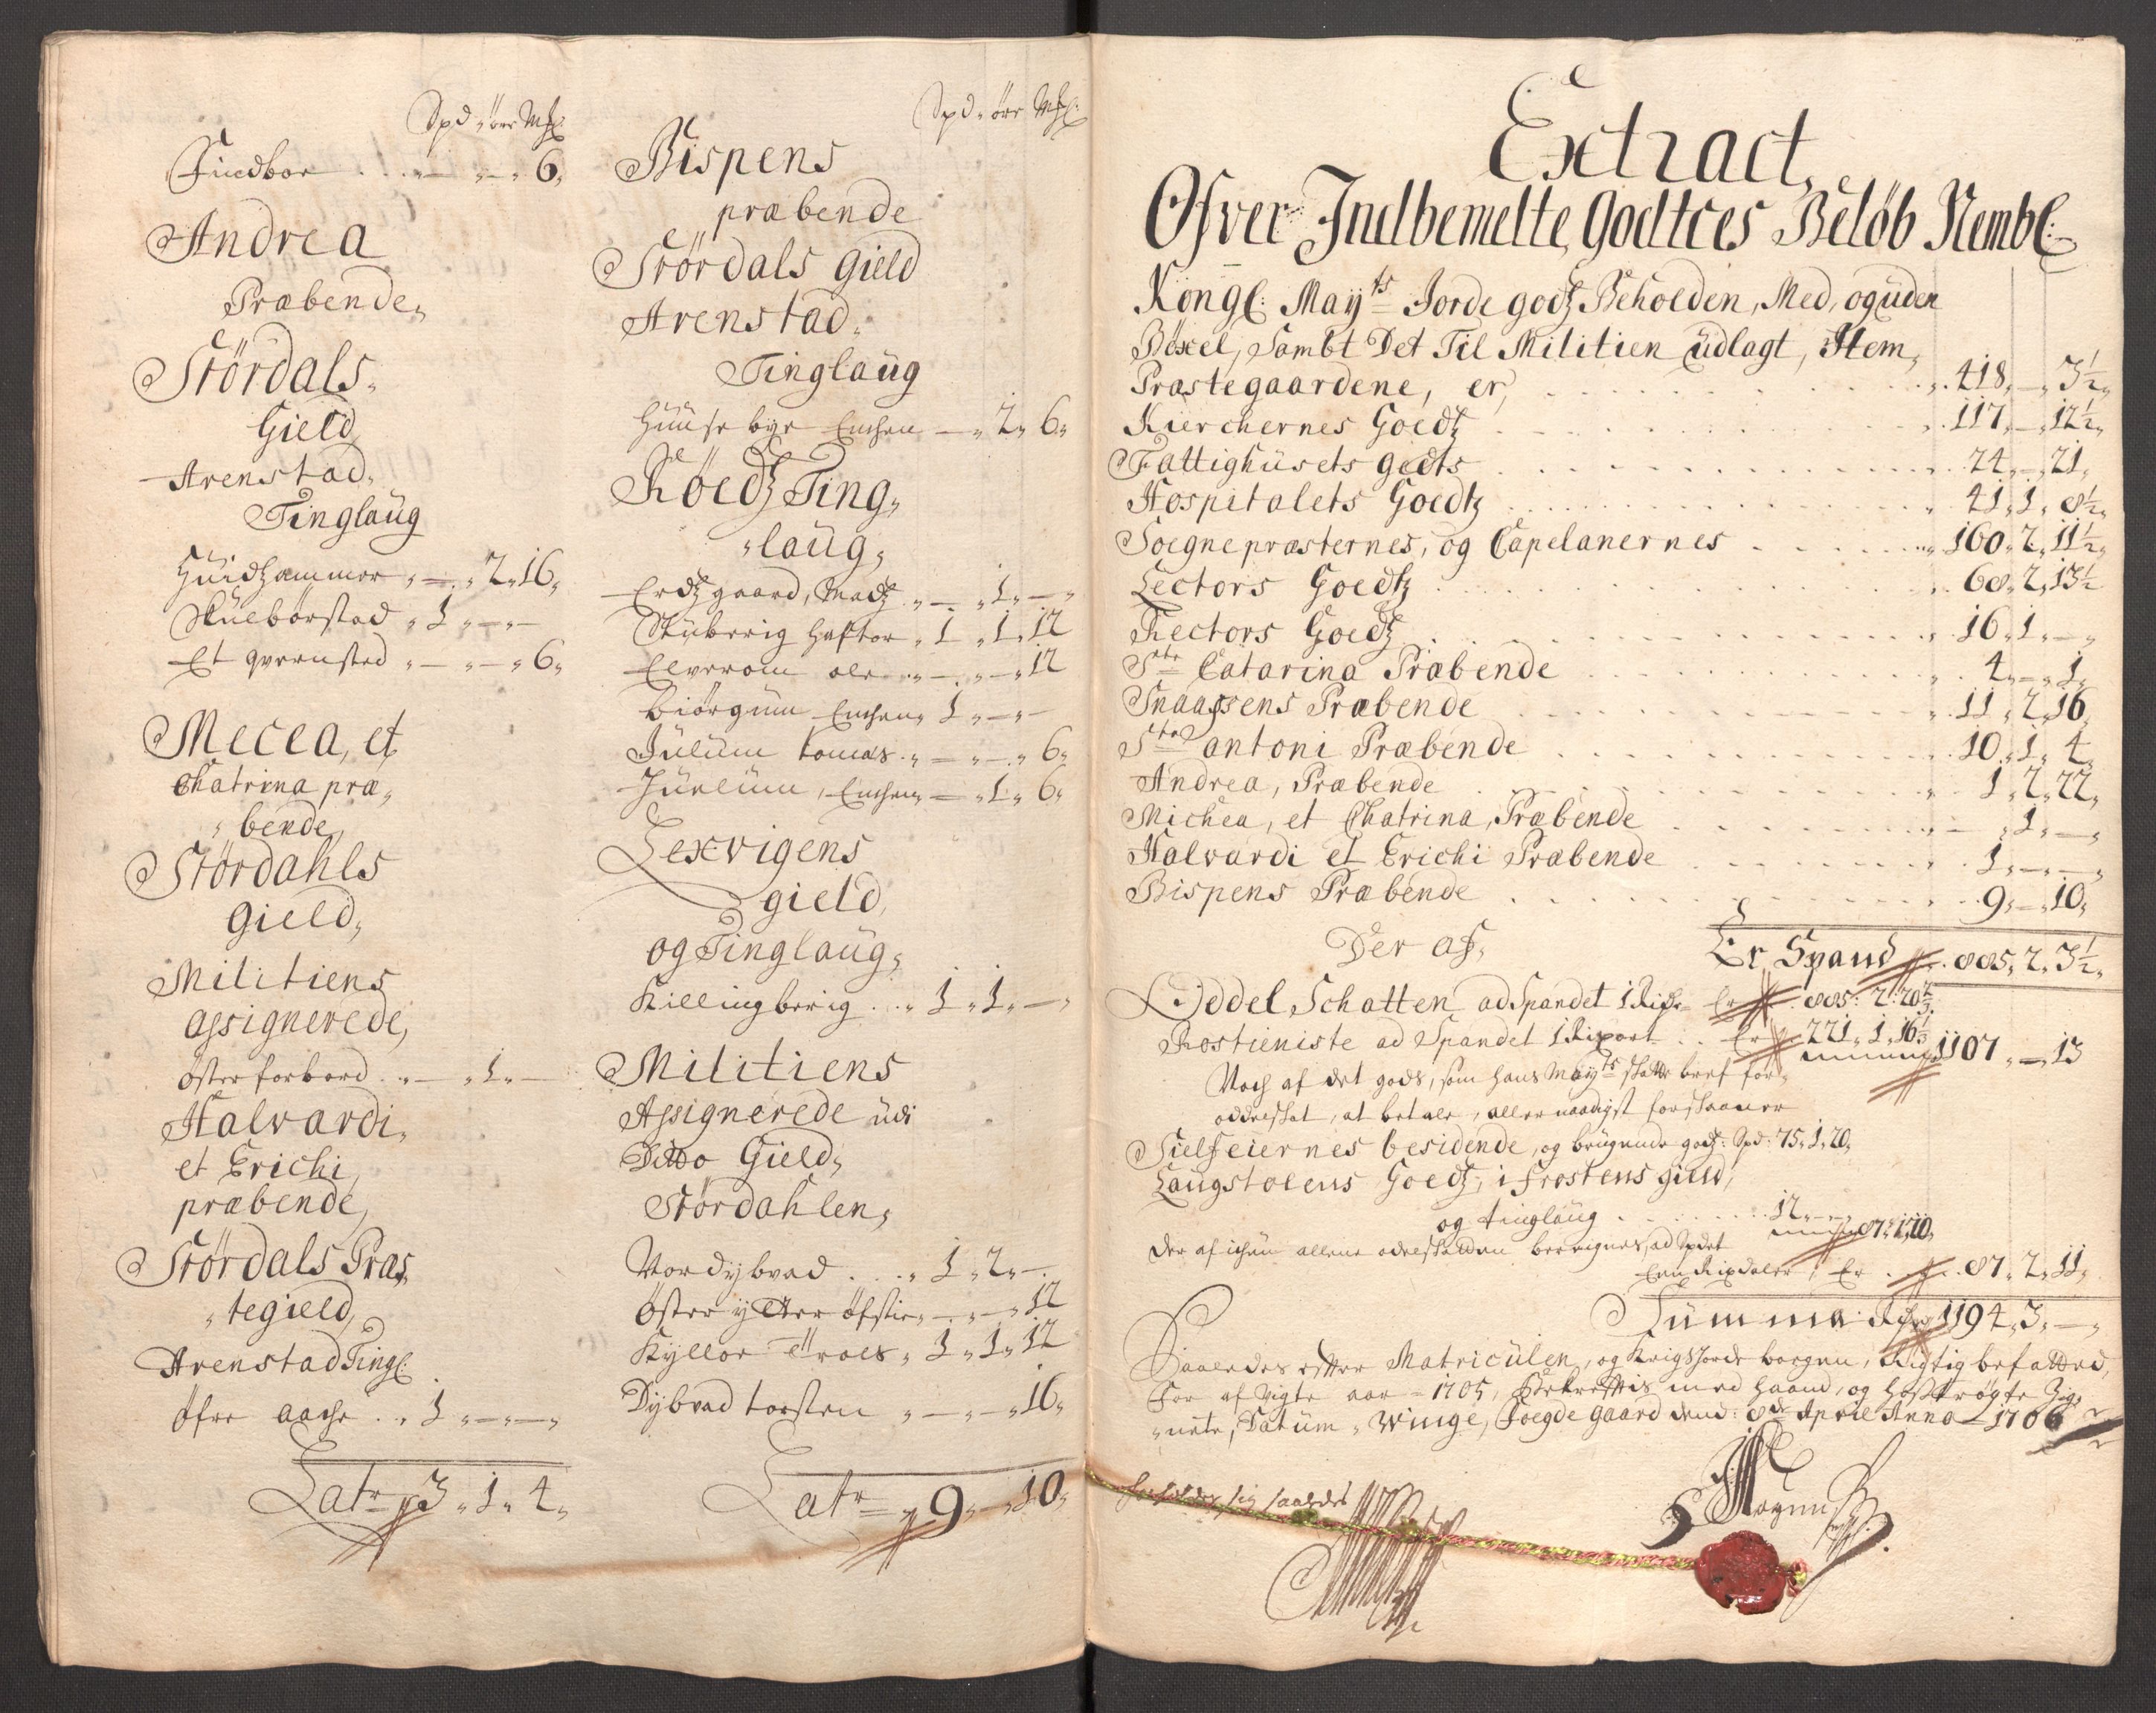 Spd „ örr Mkl:
Findbor . . . „ — „ — „ 6„
Andrea
Præbende„
Stördals„
Gield
Arenstad„
Tinglaüg
Hüidhammer „ — „ 2„ 16„
Skülbørstad „ 1 „ — „ —
Et qvernsted „ — „ — „ 6„
Mecea, et
Chatrina præ„
„bende„
Stördahls
Gield„
Militiens
assignerede,
Øster forbord . „ — „ 1 „ —
Halvardi„
et Erichi
præbende,
Stördals Præs„
„tegield,
Arenstad Tingl:
Øfre aasse . „ 1 „ — „ —„
Latr 3 „ 1 „ 4„
Spd „ örr Mkl:
Bispens
præbende
Stördals Gield
Arenstad„
Tinglaüg
Hüüsebye Enchen — „ 2„ 6„
Röedtz Ting„
„laüg„
Erdtzgaard, Madtz „ — „ 1 „ —„
Stüberig Haftor „ 1 „ 1 „ 12
Elverom ole „ — „ — „ 12
Biörgüm Enchen „ 1 „ — „ —
Jülüm Tomas „ — „ — „ 6„
Jüelüm, Enchen — „ 1 „ 6„
Lexvigens
gield
og Tinglaüg„
Killingberig . . „ 1 „ 1 „ —„
Militiens
Assignerede üdi
Ditto Gield„
Stördahlen„
Vordybvad . . . „ 1 „ 2 „ —
Øster ytter öfstie „ — „ — „ 12
Kyllor Troels „ 1 „ 1 „ 12
Dybvad torsten „ — „ — „ 16„
Latr 9 „ — „ 10„
Extract,
Øfver Indbemelte Godtzes Beløb Nembl:
Kongl: Mayts Jorde godtz Beholden, Med, og uden
Böxel, Sambt Det Til Militien üdlagt, Item,
Præstegaardene, er, . . . „ 418 „ — „ 3 ½„
Kierchernes Goedtz . . . „ 117 „ — „ 12 ½„
Fattighüsets godts . . . „ 24 „ — „ 21„
Hospitalets Goedtz . . . „ 41 „ 1 „ 8 ½„
Soegnepræsternes, og Capelanernes . . . „ 160 „ 2 „ 11 ½„
Lectors Goedtz . . . „ 68 „ 2 „ 13 ½
Rectors Goedtz . . . „ 16 „ 1 „ —„
Ste Catarina Præbende . . . „ 4 „ — „ 1„
Snaassens Præbende . . . „ 11 „ 2 „ 16
Ste antoni Præbende . . . „ 10 „ 1 „ 4„
Andrea, Præbende . . . „ 1 „ 2 „ 22„
Michea, et Chatrina, Præbende . . . „ — „ 1 „ —„
Halvardi et Erichi Præbende . . . „ 1 „ — „ —„
Bispens Præbende . . . „ 9 „ — „ 10„
Er Spand „ 885 „ 2 „ 3 ½„
Der af„
Oddel Schatten ad Spandet 1 Rixd Er 885: 2: 20 ⅔
Rostieniste ad Spandet 1 Rixort . . Er 221 „ 1 „ 16 ⅓ 1107 „ — „ 13
Noch af det gods, som hans Mayts skatte bref for„
oddelskat, at betale, aller naadigst forskaaner
Sielfeiernes besidende, og brügende godtz: Spd: 75 „ 1 „ 20„
Laugstolens Goedtz, i Frostens gield,
og tinglaüg . . . 12 „ — „ —
87 „ 1 „ 20„
der af ichün allene odelskatten beregnes, ad Spdet
Een Rixdaler, Er . . 87 „ 2 „ 11„
Summa Rdr 1194 „ 3 „ —„
Saaledes efter Matricülen, og Krigsjorde bogen, Rigtig befatted,
for afvigte aar 1705, Bekreftis med haand, og hoströgte Zig„
„nete, Datüm, Winge, Foegde gaard dend: 8de April Anno 1706
forholder sig saaledes